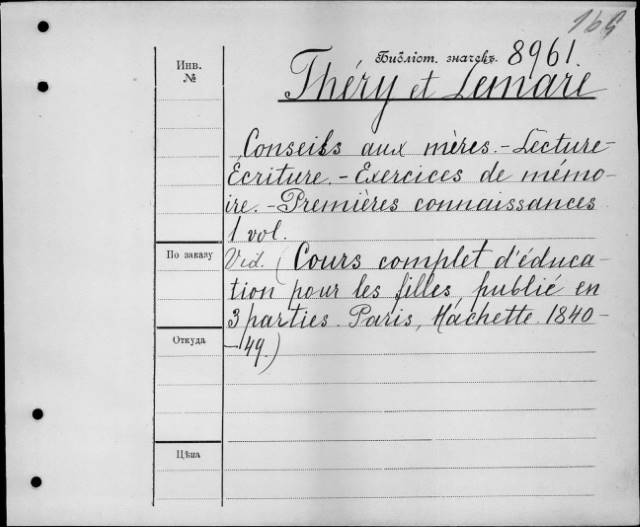 169
Библіот. значекъ. 8961.
Инв.
№
Théry et Lemare
Conseils aux mères. - Lecture -
Écriture. - Exercices de mémo-
ire. - Premières connaissances
1 vol.
По заказу
Vid. (Cours complet d'éduca-
tion pour les filles publié en
3 parties. Paris, Hachette. 1840-
Откуда
-49.)
Цѣна